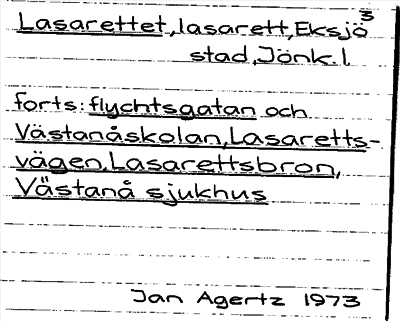 3
Lasarettet, lasarett, Eksjö
stad, Jönk. l.
forts: flychtsgatan och
Västanåskolan, Lasaretts-
vägen, Lasarettsbron,
Västanå sjukhus
Jan Agertz 1973